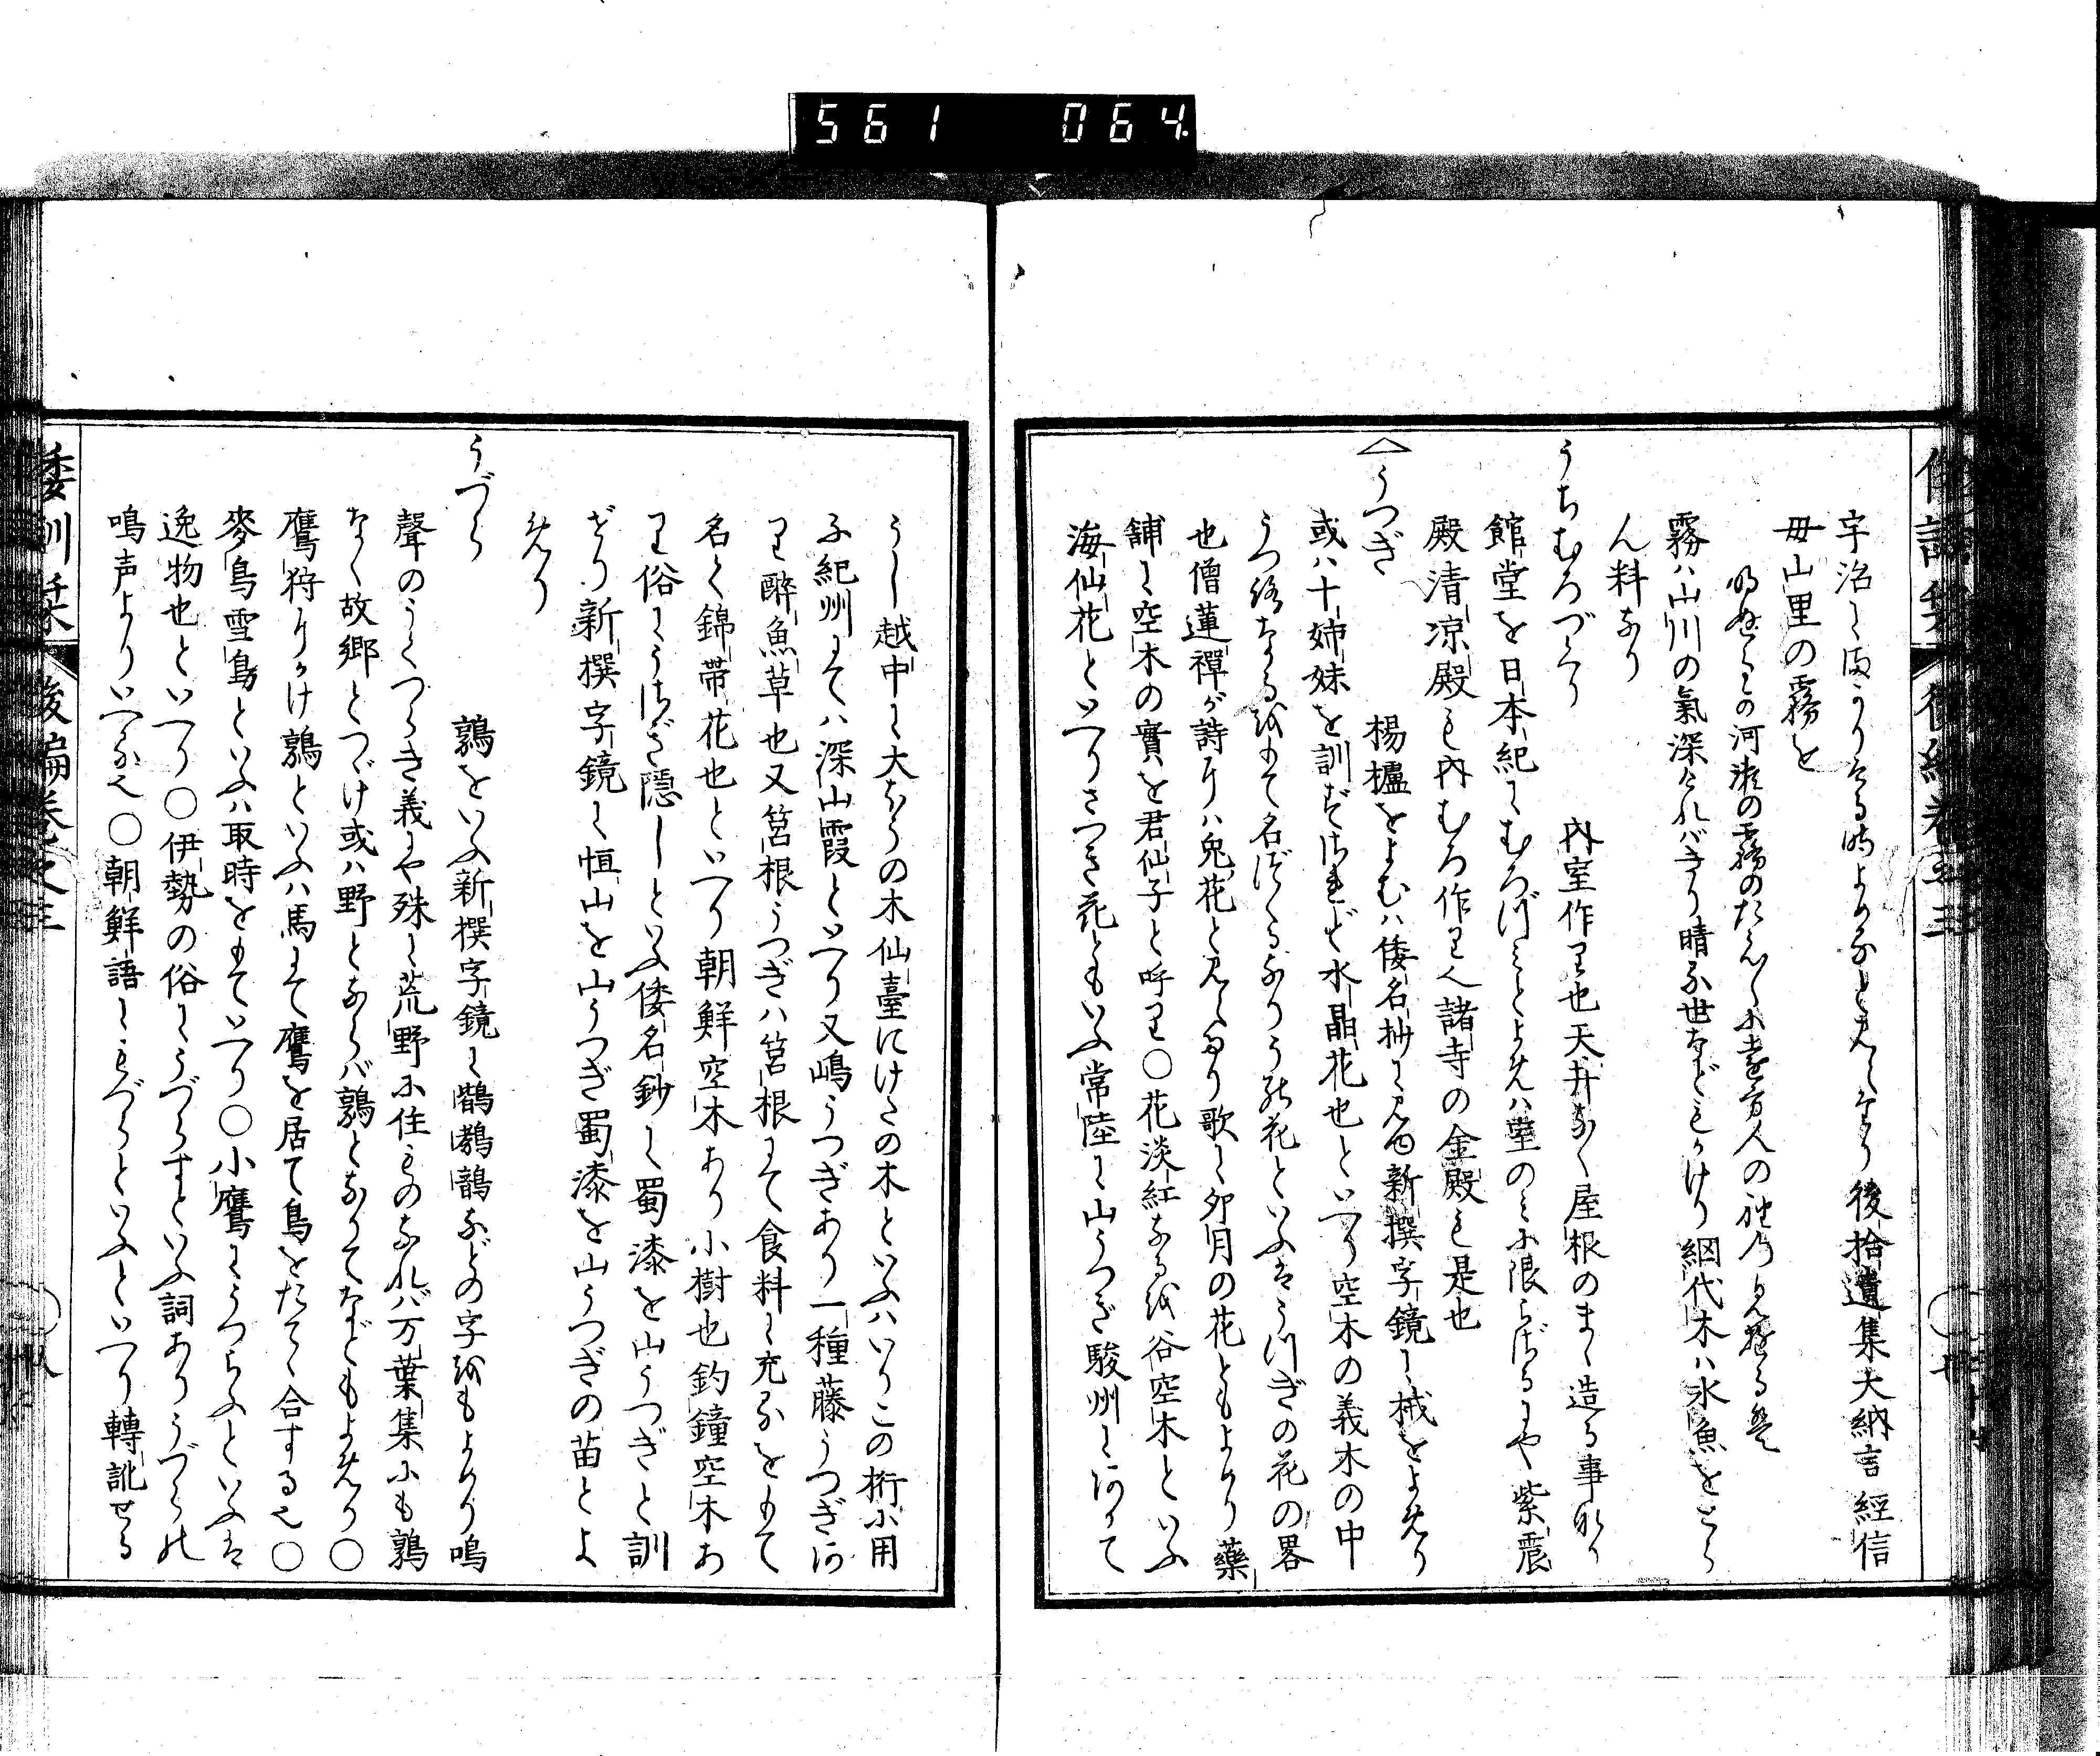 561 064
宇治にまかりける時よめるとみえたり後拾遺集大納言經信
毋山里の霧を
明ぬるか河瀬の霧のたえ〳〵に遠方人の袖のみゆるは
霧ハ山川の氣深けれバきり晴ぬ世などもかけり網代木ハ氷魚をとら
ん料なり
うちむろづくり 内室作り也天井なく屋根のまゝ造る事なり
館堂を日本紀にむろづミとよめハ堂のミに限らざるにや紫震
殿清凉殿も内むろ作りへ諸寺の金殿も是也
△うつぎ 楊櫨をよむハ倭名抄にみゆ新撰字鏡に械をよめり
或ハ十姉妹を訓ずされど水晶花也といへり空木の義木の中
うつろなるをもて名づくるなりう能花といふはうつぎの花の畧
也僧蓮禪が詩にハ兔花とみえたり歌に夘月の花ともよめり藥
舗に空木の實を君仙子と呼り〇花淡紅なるを谷空木といふ
海仙花といへりさつき花ともいふ常陸に山うつぎ駿州にあかて
うし越中に大なうの木仙臺にけたの木といふハいりこの桁に用
ふ紀州にてハ深山霞といへり又嶋うつぎあり一種藤うつぎあ
り醉魚草也又筥根うつぎハ筥根にて食料に充るをもて
名く錦帶花也といへり朝鮮空木あり小樹也釣鐘空木あ
り俗にうさぎ隱しといふ倭名鈔に蜀漆を山うつぎと訓
ぜり新撰字鏡に恒山を山うつぎ蜀漆を山うつぎの苗とよ
めり
うづら 鶉をいふ新撰字鏡に鶺鷜鶕などの字をもよめり鳴
聲のうくつらき義にや殊に荒野に住ものなれバ万葉集にも鶉
なく故郷とつゞけ或ハ野とならバ鶉となりてなどもよめり〇
鷹狩にかけ鶉といふハ馬にて鷹を居て鳥をたてゝ合する也〇
麥鳥雪鳥といふハ取時をもていへり〇小鷹にうつらふといふは
逸物也といへり〇伊勢の俗にうづらすといふ詞ありうづらの
鳴声よりいへる也〇朝鮮語にもづらといふといへり轉訛せる
倭訓栞 後編卷之三